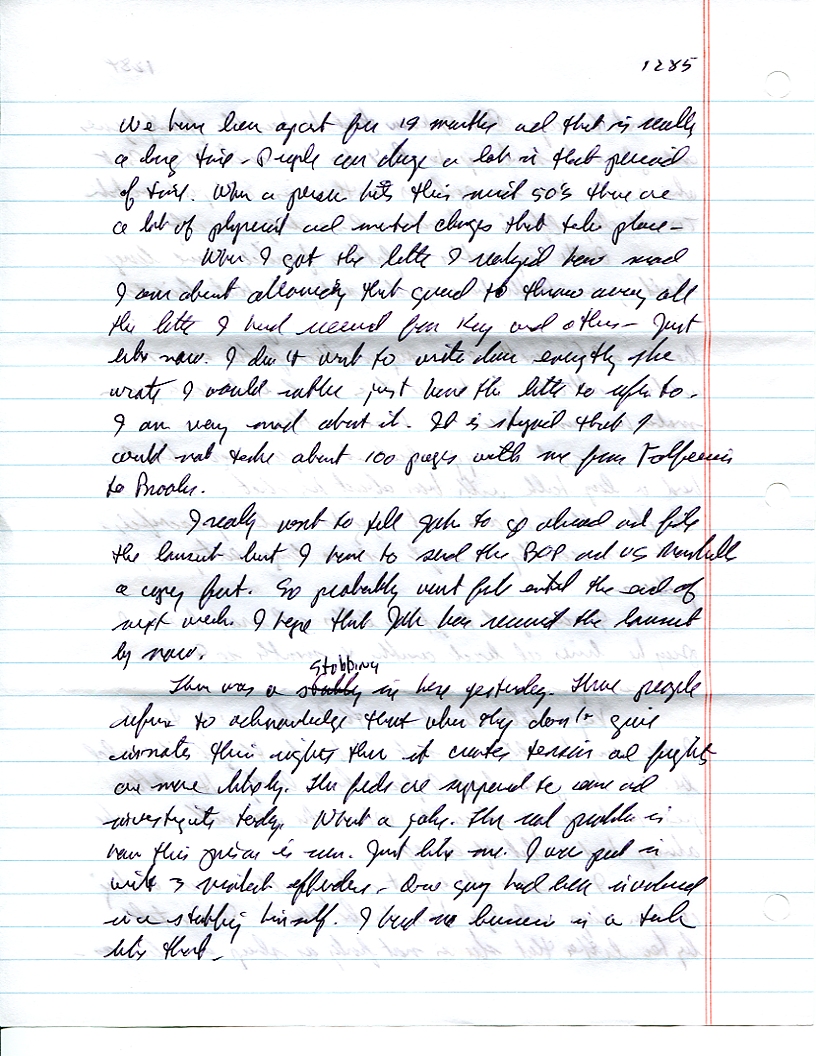 1285
We have been apart for 19 months and that is really
a long time - People can change a lot in that period
of time. When a person hits their mid 50's there are
a lot of physical and mental changes that take place -
When I got the letter I realized how mad
I am about allowing that guard to throw away all
the letters I had received from Kay and others - Just
like now. I don't want to write down everything she
wrote I would rather just have the letter to refer to.
I am very mad about it. It is stupid that I
could not take about 100 pages with me from
to Brooks.
I really want to tell to go ahead and file
the lawsuit but I have to send the BOP and US Marshalls
a copy first. So probably wont file until the end of
next week. I hope that has received the lawsuit
by now.
There was a stabbing in here yesterday. These people
refuse to acknowledge that when they don't give
inmates their rights then it creates tension and fights
are more likely. The feds are supposed to come and
investigate today. What a joke. The real problem is
how this prison is run. Just like me. I was put in
with 3 violent offenders - One guy had been involved
in a stabbing himself. I had no business in a tank
like that -